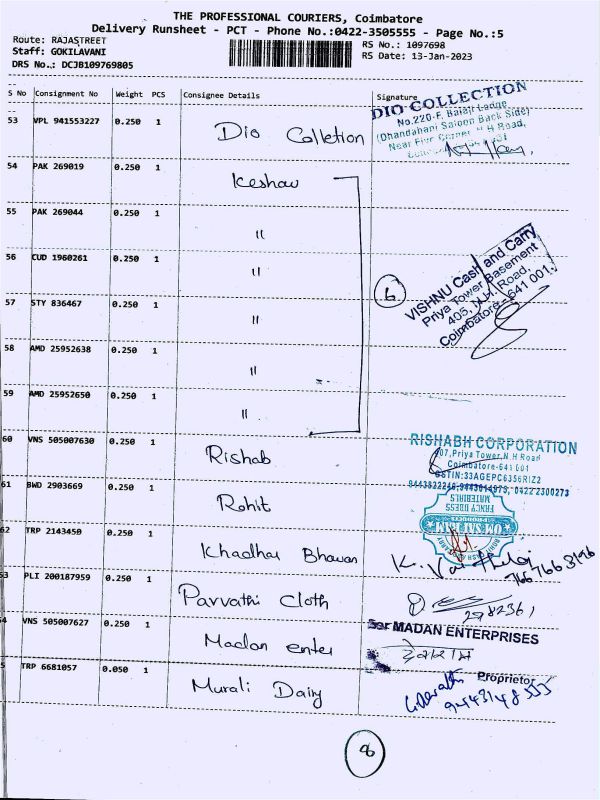 THE PROFESSIONAL COURIERS, Coimbatore
Delivery Runsheet - PCT - Phone No.:0422-3505555 - Page No.:5
Route: RAJASTREET
Staff: GOKILAVANI
DRS No.: DCJB109769805
RS No.: 1097698
RS Date: 13-Jan-2023
S No Consignment No Weight PCS Consignee Details Signature
53 VPL 941553227 0.250 1 Dio Colletion
DIO COLLECTION
No.220-F, Balaji Lodge
(Dhandahani Saloon Back Side)
Near Five Corner, N H Road,
54 PAK 269019 0.250 1 Keshav
55 PAK 269044 0.250 1 "
56 CUD 1960261 0.250 1 "
57 STY 836467 0.250 1 "
58 AMD 25952638 0.250 1 "
59 AMD 25952650 0.250 1 "
6
VISHNU Cash and Carry
Priya Tower Basement
405, N.H. Road,
Coimbatore - 641 001.
60 VNS 505007630 0.250 1 Rishab
RISHABH CORPORATION
407, Priya Tower, N.H Road
Coimbatore-641 001
GSTIN:33AGEPC6356R1Z2
0422 2300273
61 BWD 2903669 0.250 1 Rohit
OM SAI RAM
FANCY DRESS
MATERIALS
62 TRP 2143450 0.250 1 Khadhar Bhavan
766 766 3196
63 PLI 200187959 0.250 1 Parvathi Cloth
2982361
64 VNS 505007627 0.250 1 Madan enter
For MADAN ENTERPRISES
Proprietor
5 TRP 6681057 0.050 1 Murali Dairy
9443148555
8